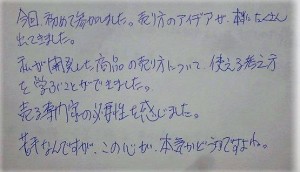 今回初めて参加しました。売り方のアイデアが、本当にたくさん
出てきました。
私が開発した商品の売り方について、使える考え方
を学ぶことができました。
売る専門家の必要性を感じました。
苦手なんですが、この心が、本気かどうかですよね。